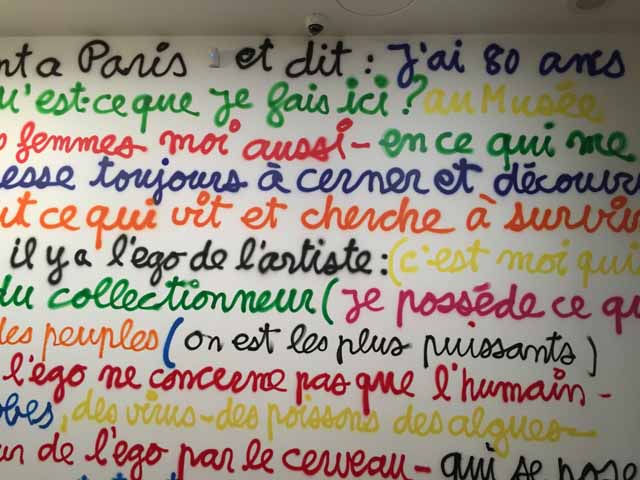 nt a Paris et dit : J'ai 80 ans
u'est-ce que je fais ici ? au Musée
femmes moi aussi - en ce qui me
esse toujours à cerner et découvr
ut ce qui vit et cherche à surviv
il y a l'ego de l'artiste : (c'est moi qui
du collectionneur ( je posséde ce qu
des peuples ( on est les plus puissants )
l'égo ne concerne pas que l'humain -
obes, des virus - des poissons des algues -
ur de l'égo par le cerveau - qui se pose